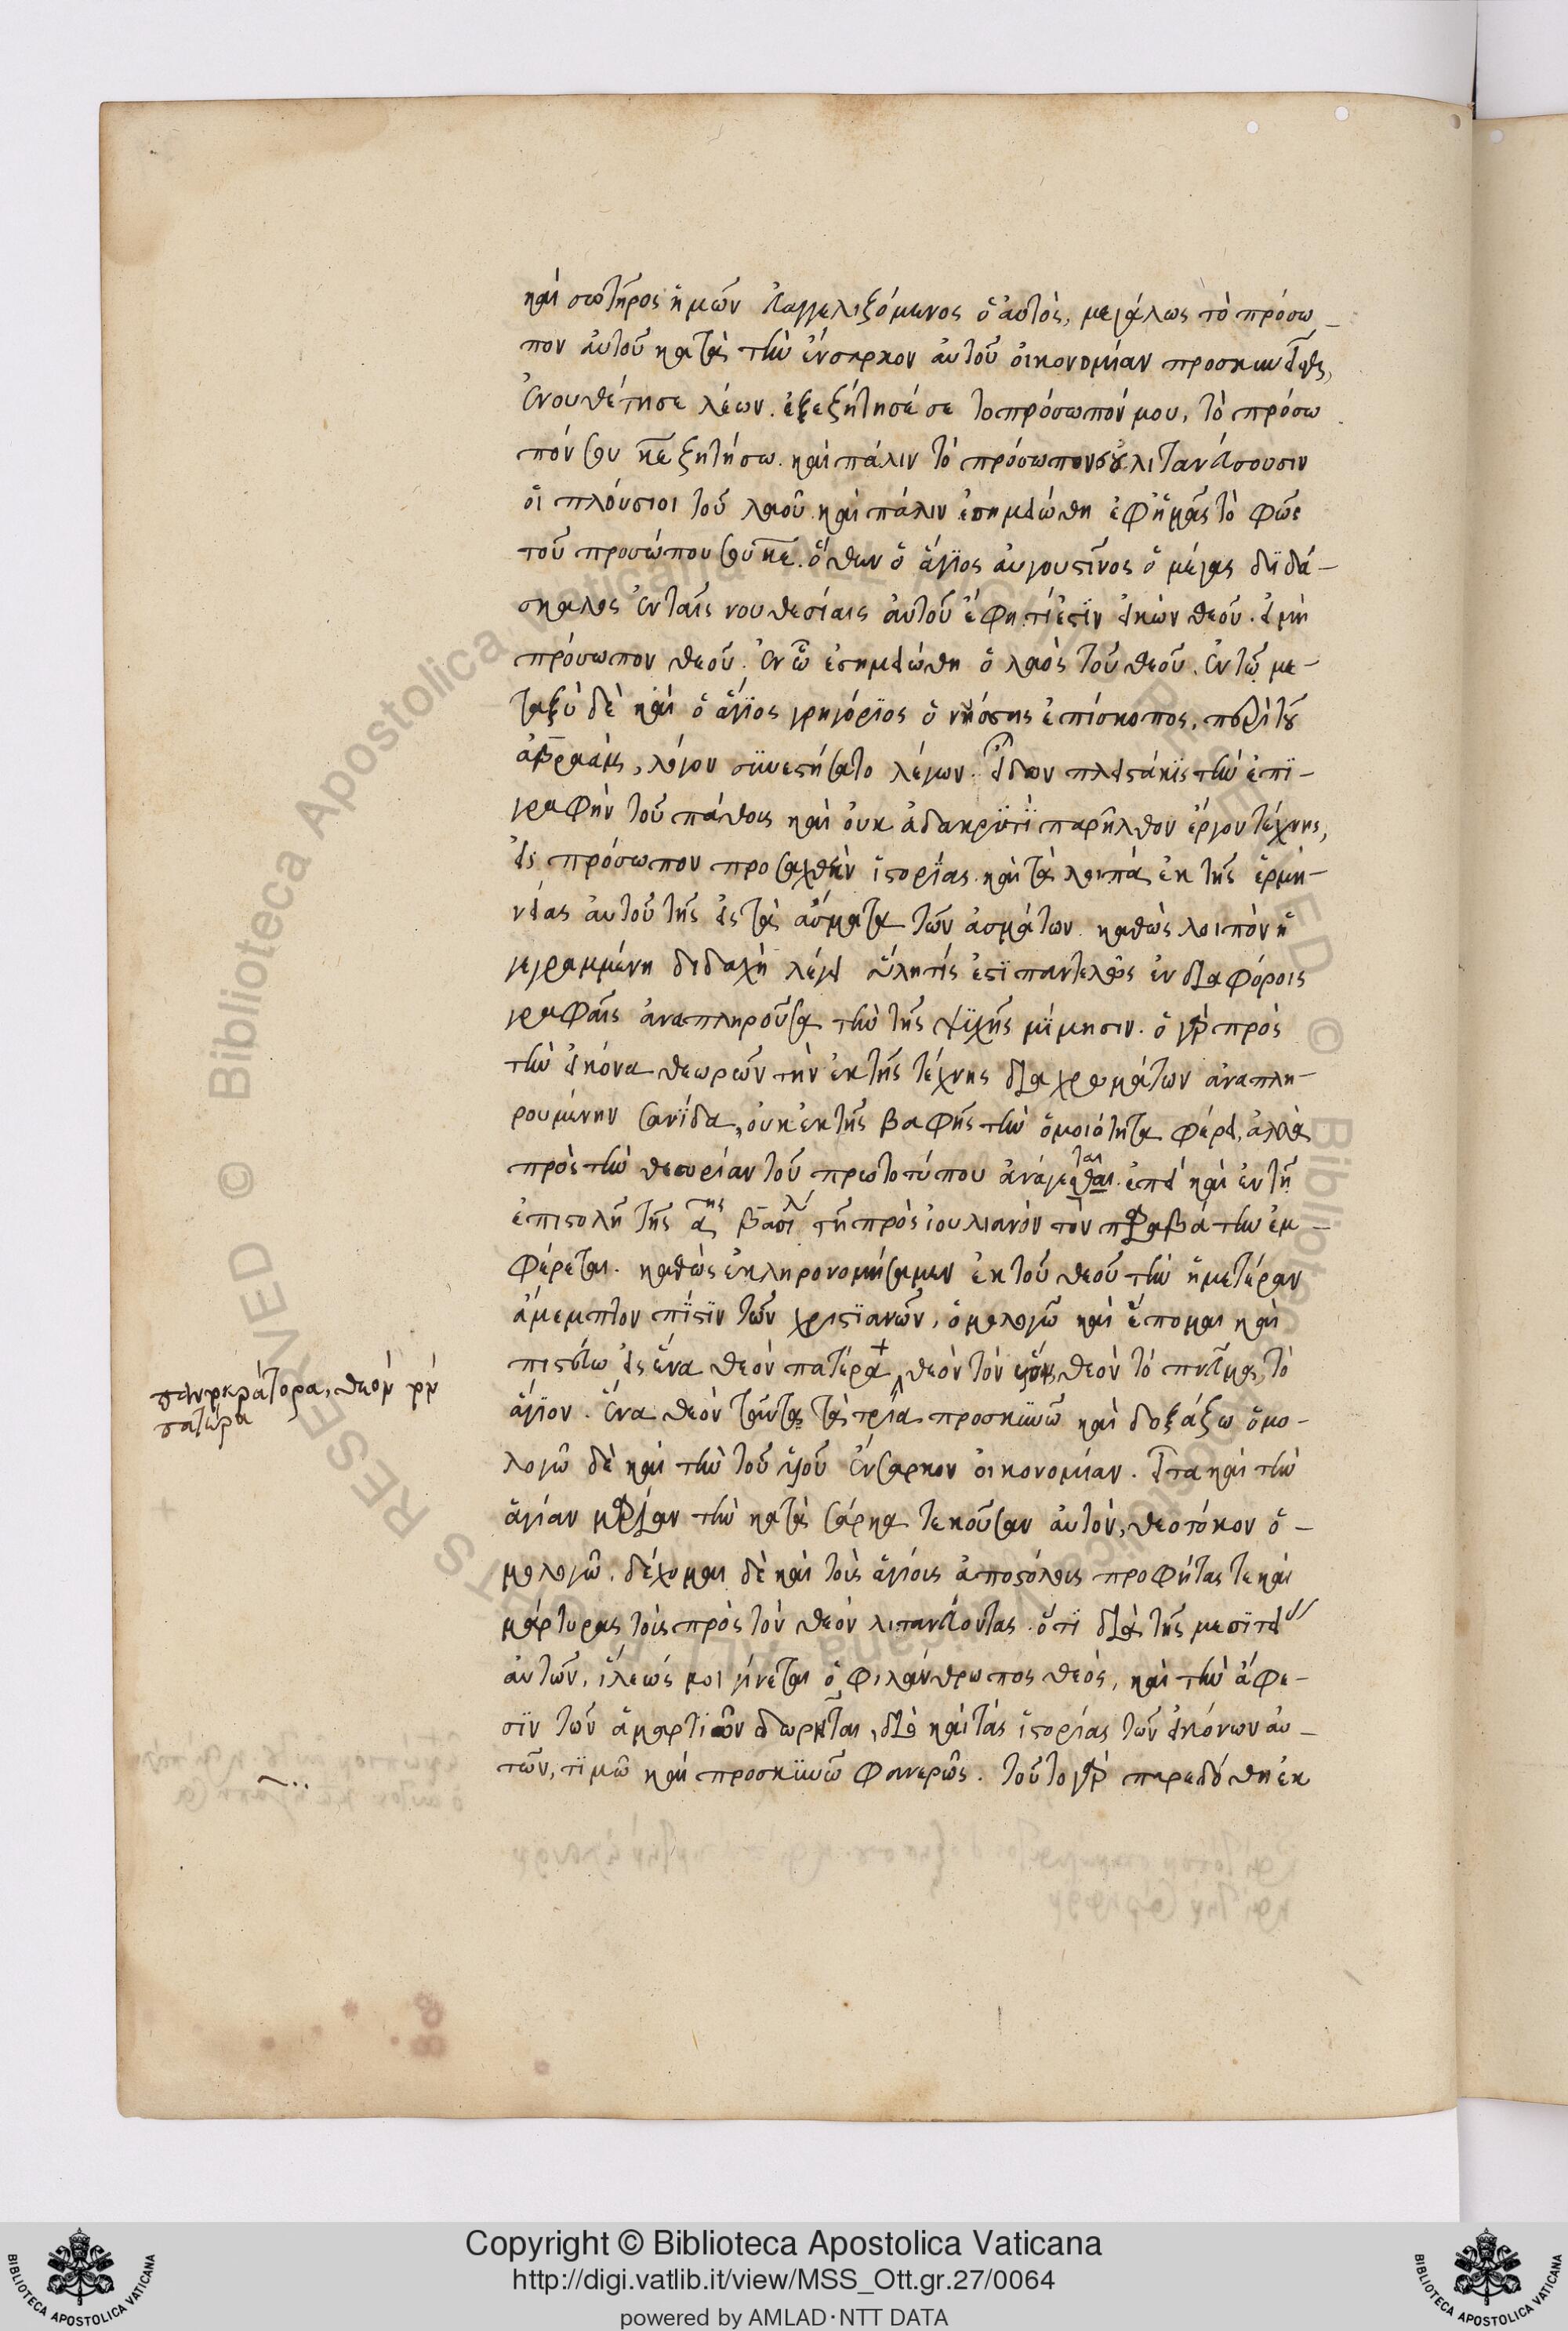 καὶ σωτῆρος ἡμῶν εὐαγγελιζόμενος ὁ αὐτὸς, μεγάλως τὸ πρόσω–
πον αὐτοῦ κατὰ τὴν ἔνσαρκον αὐτοῦ οἰκονομίαν προσκυνεῖσθαι,
ἐνουθέτησε λέων. ἐξεζήτησέ σε τὸ πρόσωπόν μου, τὸ πρόσω
πόν σου κε ζητήσω. καὶ πάλιν τὸ πρόσωπον σου λιτανεύσουσιν
οἱ πλούσιοι τοῦ λαοῦ. καὶ πάλιν ἐσημειώθη ἐφ ἡμᾶς τὸ φῶς
τοῦ προσώπου σου κε. ὅθεν ὁ ἅγιος αὐγουστῖνος ὁ μέγας διδά–
σκαλος ἐν ταῖς νουθεσίαις αὐτοῦ ἔφη. τί ἐστὶν εἰκὼν θεοῦ. εἰ μὴ
πρόσωπον θεοῦ. ἐν ᾧ ἐσημειώθη ὁ λαὸς τοῦ θεοῦ. ἐν τῷ με–
ταξὺ δὲ καὶ ὁ ἅγιος γρηγόριος ὁ νήσσης ἐπίσκοπος, περὶ τοῦ
ἀβραὰμ, λόγον συνεστήσατο λέγων. εἶδον πλειστάκις τὴν ἐπι–
γραφὴν τοῦ πάθους καὶ οὐκ ἀδακρυτὶ παρῆλθον ἔργον τέχνης,
εἰς πρόσωπον προσαχθὲν ἱστορίας. καὶ τὰ λοιπὰ ἐκ τῆς ἑρμη–
νείας αὐτοῦ τῆς εἰς τὰ ᾄσματα τῶν ἀσμάτων. καθὼς λοιπὸν ἡ
γεγραμμένη διδαχὴ λέγει ὕλη τίς ἐστι παντελῶς ἐν διαφόροις
γραφαῖς ἀναπληροῦσα τὴν τῆς ψυχῆς μίμησιν. ὁ γὰρ πρὸς
τὴν εἰκόνα θεωρῶν τὴν ἐκ τῆς τέχνης διὰ χρωμάτων ἀναπλη–
ρουμένην σανίδα, οὐκ ἐκ τῆς βαφῆς τὴν ὁμοιότητα φέρει, ἀλλὰ
πρὸς τὴν θεωρίαν τοῦ πρωτοτύπου ἀνάγεσθαι. ἐπεὶ καὶ ἐν τῇ
ἐπιστολῇ τῆς βασι τῇ πρὸς ἰουλιανὸν τὸν παραβάτην ἐμ–
φέρεται. καθὼς ἐκληρονομήσαμεν ἐκ τοῦ θεοῦ τὴν ἡμετέραν
ἄμεμπτον πίστιν τῶν χριστιανῶν, ὁμολογῶ καὶ ἕπομαι καὶ
πιστεύω εἰς ἕνα θεὸν πατέρα, θεὸν τὸν υἱὸν, θεὸν τὸ πνεῦμα, τὸ
ἅγιον. ἕνα θεὸν ταῦτα τὰ τρία προσκυνῶ καὶ δοξάζω ὁμο–
λογῶ δὲ καὶ τὴν τοῦ υἱοῦ ἔνσαρκον οἰκονομίαν. εἶτα καὶ τὴν
ἁγίαν μαρίαν τὴν κατὰ σάρκα τεκοῦσαν αὐτὸν, θεοτόκον ὁ–
μολογῶ. δέχομαι δὲ καὶ τοὺς ἁγίους ἀποστόλους προφήτας τε καὶ
μάρτυρας τοὺς πρὸς τὸν θεὸν λιτανεύοντας. ὅτι διὰ τῆς μεσιτείας
αὐτῶν, ἵλεώς μοι γίνεται ὁ φιλάνθρωπος θεὸς, καὶ τὴν ἄφε–
σιν τῶν ἁμαρτιῶν δωρεῖται, διὸ καὶ τὰς ἱστορίας τῶν εἰκόνων αὐ–
τῶν, τιμῶ καὶ προσκυνῶ φανερῶς. τοῦτο γὰρ παρεδόθη ἐκ
παντοκράτορα, θεὸν
πατέρα
Copyright © Biblioteca Apostolica Vaticana
http://digi.vatlib.it/view/MSS_Ott.gr.27/0064
powered by AMLAD·NTT DATA